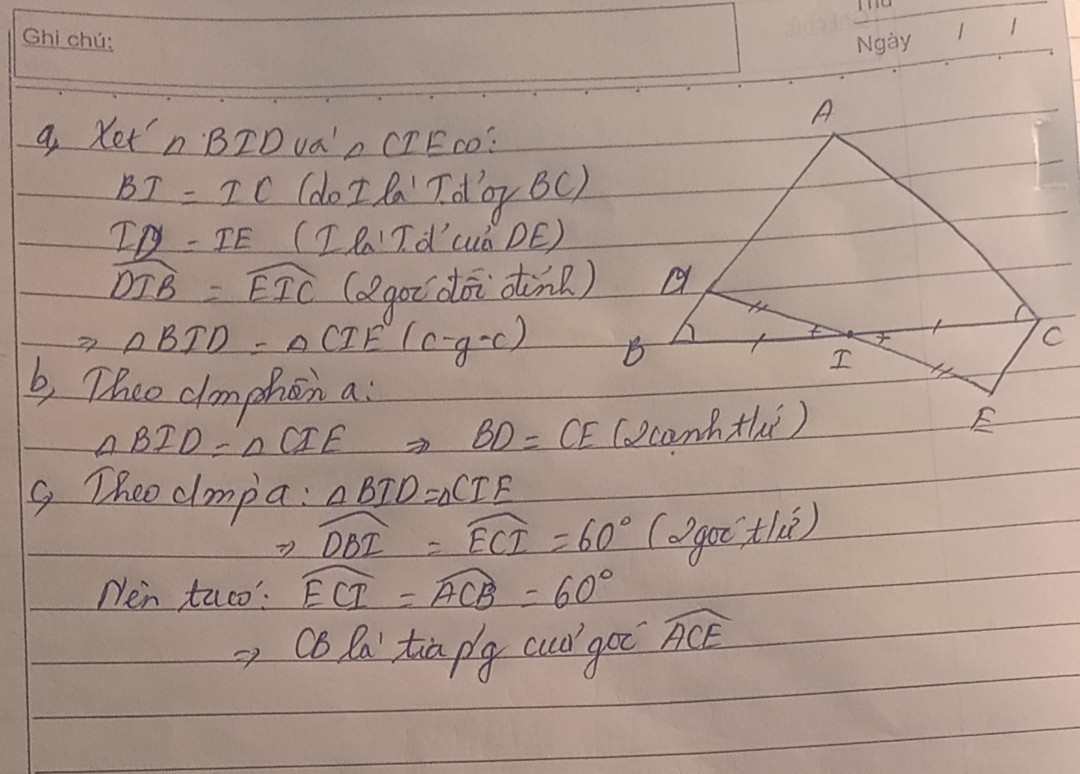 Ghi chú:
Thứ
Ngày / /
a, Xét △ BID và △ CIE có:
BI = IC (do I là T.đ' og BC)
ID = IE (I là T.đ' của DE)
DIB = EIC (2 góc đối đỉnh)
⇒ △BID = △CIE (c-g-c)
b, Theo cm phần a:
△BID = △CIE ⇒ BD = CE (2 cạnh t/ứ)
c, Theo cm p a: △BID = △CIE
⇒ DBI = ECI = 60° (2 góc t/ứ)
Nên ta có: ECI = ACB = 60°
⇒ CB là tia p/g của góc ACE
A
D
B
I
C
E